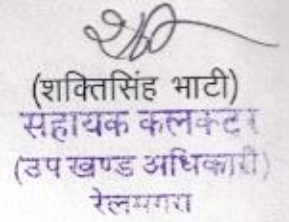 (शक्तिसिंह भाटी)
सहायक कलक्टर
(उप खण्ड अधिकारी)
रेलमगरा